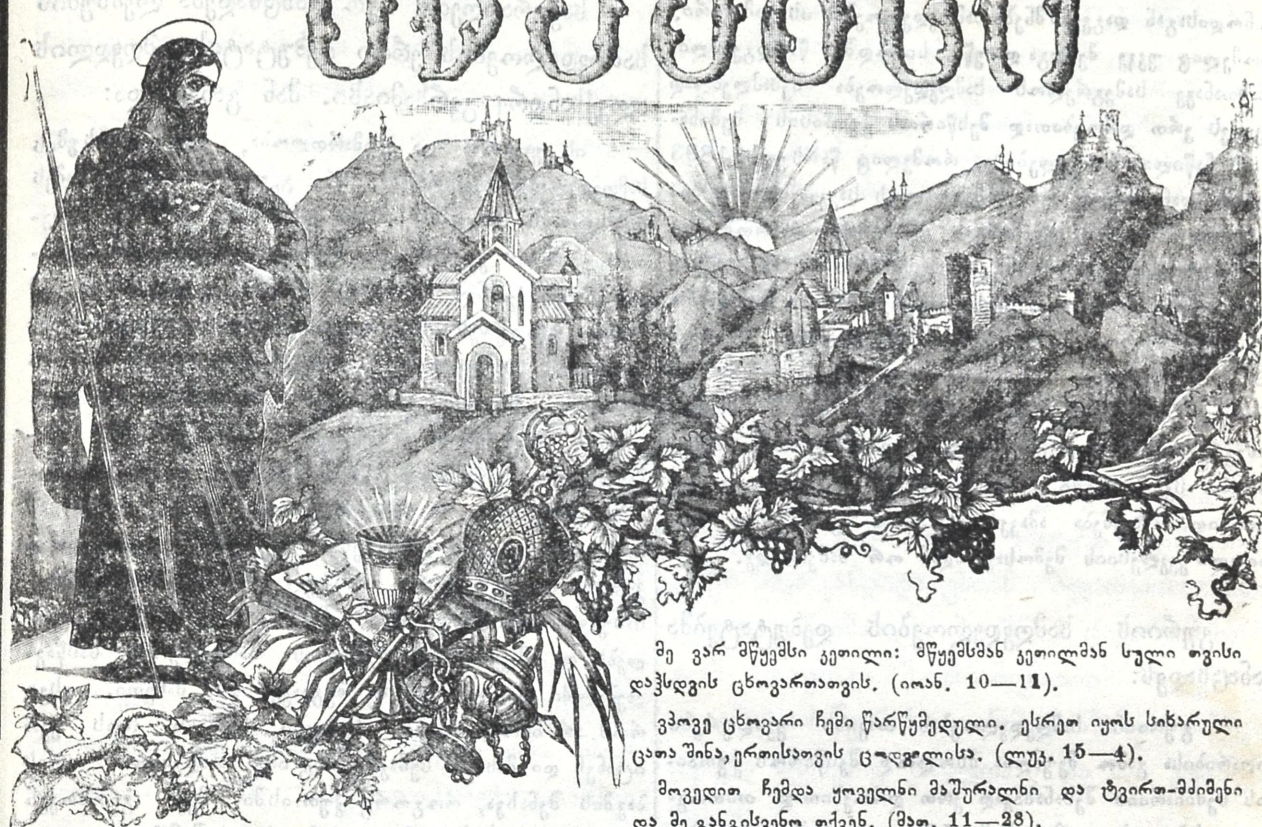 მე ვარ მწყემსი კეთილი: მწყემსმან კეთილმან სული თვისი
დაჰსდგის ცხოვართათვის. (იოან. 10—11).
ვპოვე ცხოვარი ჩემი წარწყმედული. ესრეთ იყოს სიხარული
ცათა შინა, ერთისათვის ცოდვილისა (ლუკ. 15—4).
მოვედით ჩემდა ყოველნი მაშურალნი და ტვირთ-მძიმენი
და მე განგისვენო თქვენ. (მათ. 11—28).